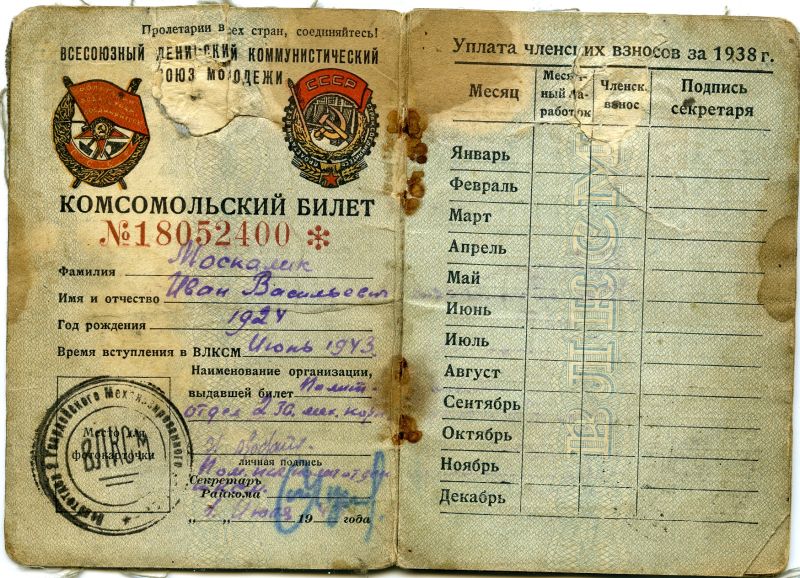 Пролетарии всех стран, соединяйтесь!
ВСЕСОЮЗНЫЙ ЛЕНИНСКИЙ КОММУНИСТИЧЕСКИЙ
СОЮЗ МОЛОДЕЖИ
СССР
КОМСОМОЛЬСКИЙ БИЛЕТ
№18052400 *
Фамилия Москалик
Имя и отчество Иван Васильевич
Год рождения 1924
Время вступления в ВЛКСМ Июнь 1943
Наименование организации,
выдавшей билет Полит-
отдел 2 гв. мех. корп
Место для
фотокарточки
ВЛКСМ
личная подпись
Секретарь
Райкома
" " Июля 19 года
Уплата членских взносов за 1938 г.
Месяц
Месяч-
ный за-
работок
Членск.
взнос
Подпись
секретаря
Январь
Февраль
Март
Апрель
Май
Июнь
Июль
Август
Сентябрь
Октябрь
Ноябрь
Декабрь
ВЛКСМ